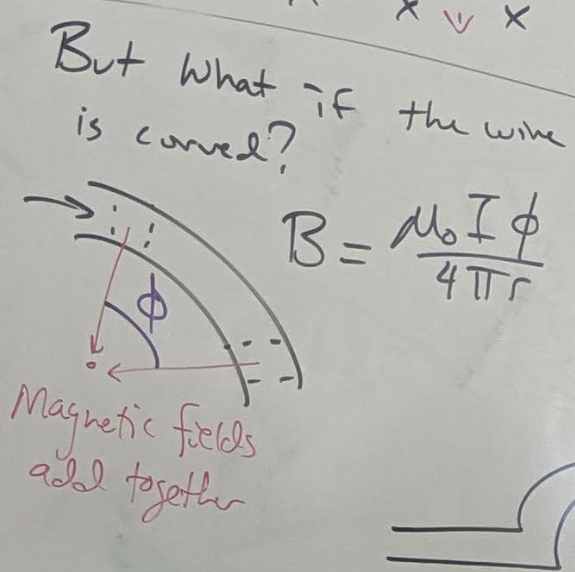 x x
But what if the wire
is curved?
B = μ₀Iϕ / 4πr
ϕ
Magnetic fields
add together